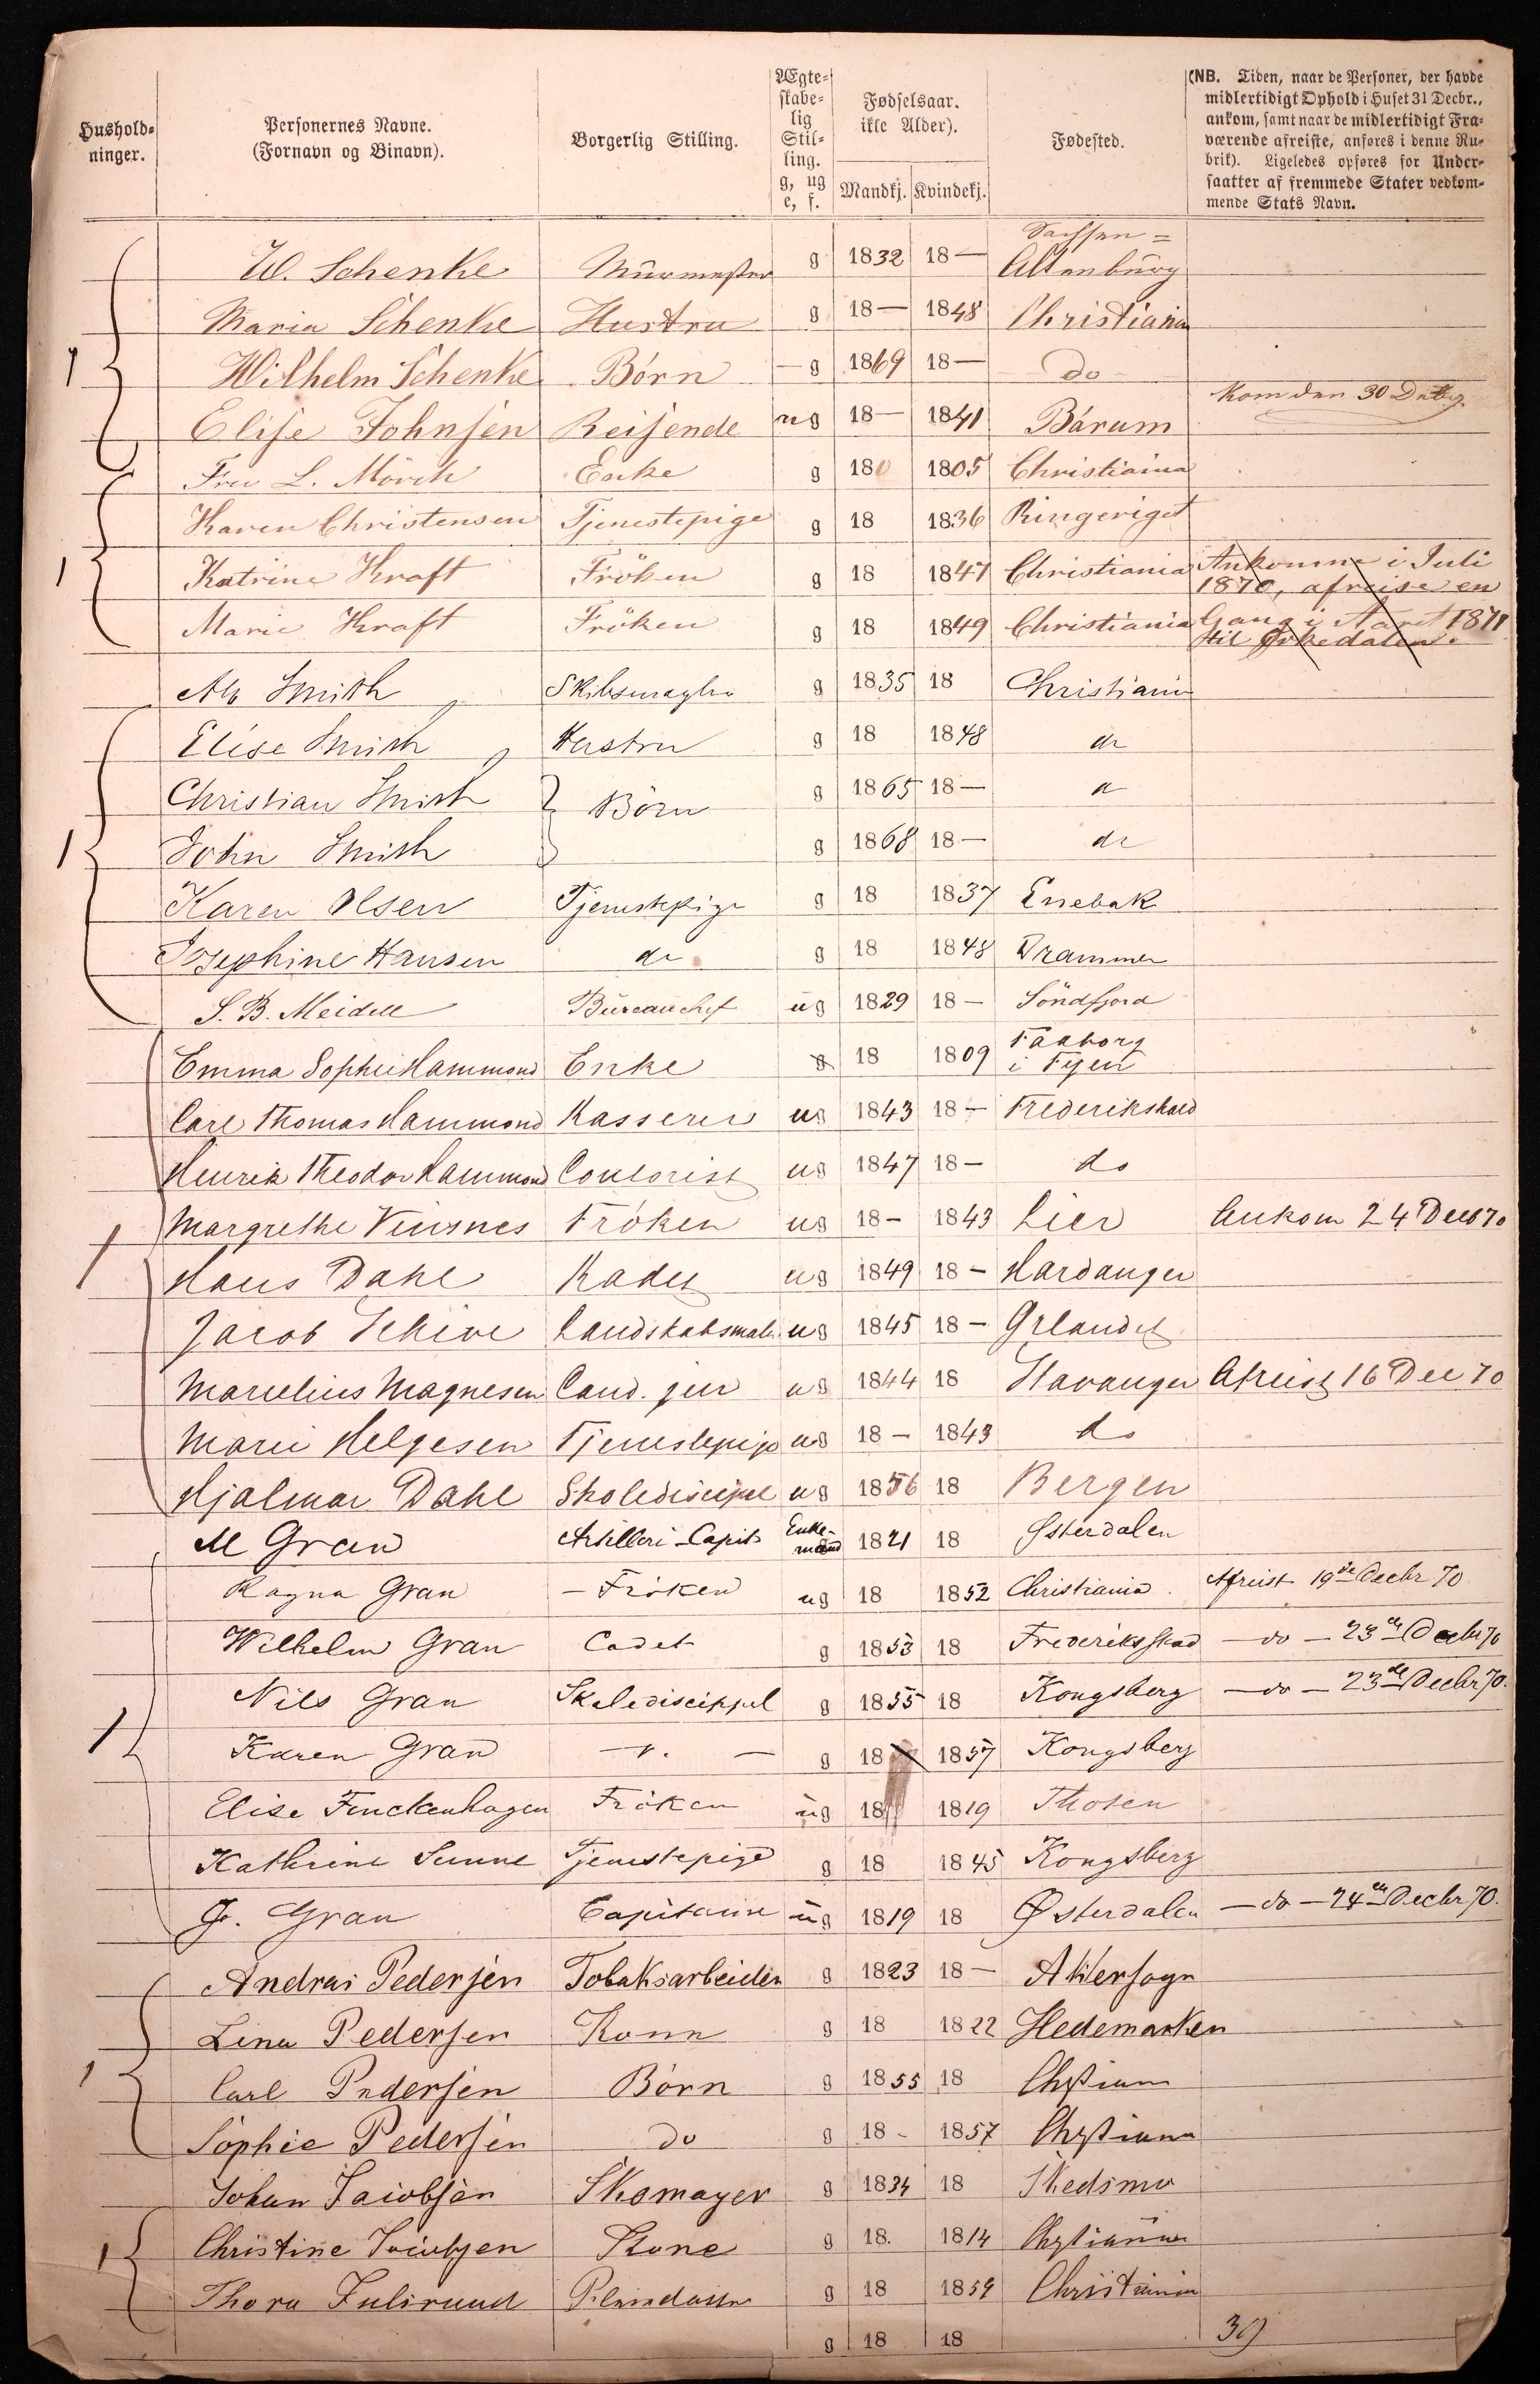 Hushold-
ninger.
Personernes Navne.
(Fornavn og Binavn).
Borgerlig Stilling.
Ægte-
skabe-
lig
Stil-
ling.
g, ug
e, f.
Fødselsaar.
ikke Alder).
Mandkj. Kvindekj.
Fødested.
(NB. Tiden, naar de Personer, der havde
midlertidigt Ophold i Huset 31 Decbr.,
ankom, samt naar de midlertidigt Fra-
værende afreiste, anføres i denne Ru-
brik). Ligeledes opføres for Under-
saatter af fremmede Stater vedkom-
mende Stats Navn.
Sachsen =
W. Schenke Murmester g 1832 18— Altenburg
Maria Schenke Hustru g 18— 1848 Christiania
1 Wilhelm Schenke Börn — g 1869 18— do
Elise Johnsen Reisende ug 18— 1841 Bárum Kom den 30
Fru L. Mörch Enke g 180 1805 Christiania
Karen Christensen Tjenestepige g 18 1836 Ringeriget
1 Katrine Kraft Fröken g 18 1847 Christiania Ankomne i Juli
1870, afreise en
Marie Kraft Fröken g 18 1849 Christiania Gang i Aaret 1871
til Orkedalen.
Smith Skibsmægler g 1835 18 Christiania
Elise Smith Hustru g 18 1848 do
Christian Smith Börn g 1865 18—
1 John Smith g 1868 18— do
Karen Olsen Tjenestepige g 18 1837 Enebak
Josephine Hansen do g 18 1848 Drammen
S. B. Meidell Bureauchef ug 1829 18— Söndfjord
Emma Sophie Hammond Enke g 18 1809 Faaborg
i Fyen
Carl Thomas Hammond Kasserer ug 1843 18— Frederikshald
Henrik Theodor Hammond Contorist ug 1847 18— do
1 Margrethe Vinsnes Fröken ug 18— 1843 Lier Ankom 24 Decb 70
Hans Dahl Kadet ug 1849 18— Hardanger
Jacob Schive Landskabsmaler ug 1845 18—
Marcelius Magnesen Cand. jur ug 1844 18 Stavanger Afreist 16 Dec 70
Marie Helgesen Tjenestepige ug 18— 1843 do
Hjalmar Dahl Skolediscipel ug 1856 18 Bergen
M Gran Artilleri-Capit Enke-
mand 1821 18 Østerdalen
Ragna Gran — Fröken ug 18 1852 Christiania. Afreist 19de Decbr 70
Wilhelm Gran Cadet g 1853 18 Frederiksstad — do — 23de Decbr 70
Nils Gran Skolediscippel g 1855 18 Kongsberg — do — 23de Decbr 70.
1 Karen Gran g 18 1857 Kongsberg
Elise Finckenhagen Fröken ug 18 1819 Thoten
Kathrine Sunne Tjenestepige g 18 1845 Kongsberg
J. Gran Capitaine ug 1819 18 Østerdalen — do — 24de Decbr 70.
Andreas Pedersen Tobaksarbeider g 1823 18— Akersogn
Lina Pedersen Kone g 18 1822 Hedemarken
1 Carl Pedersen Börn g 1855 18 Chstiania
Sophie Pedersen do g 18— 1857 Chrstiania
Johan Jacobsen Skomager g 1834 18 Skedsmo
1 Christine Jacobsen Kone g 18. 1814 Chrstiania
Thora Julsruud Pleiedatter g 18 1859 Christiania
g 18 18 39